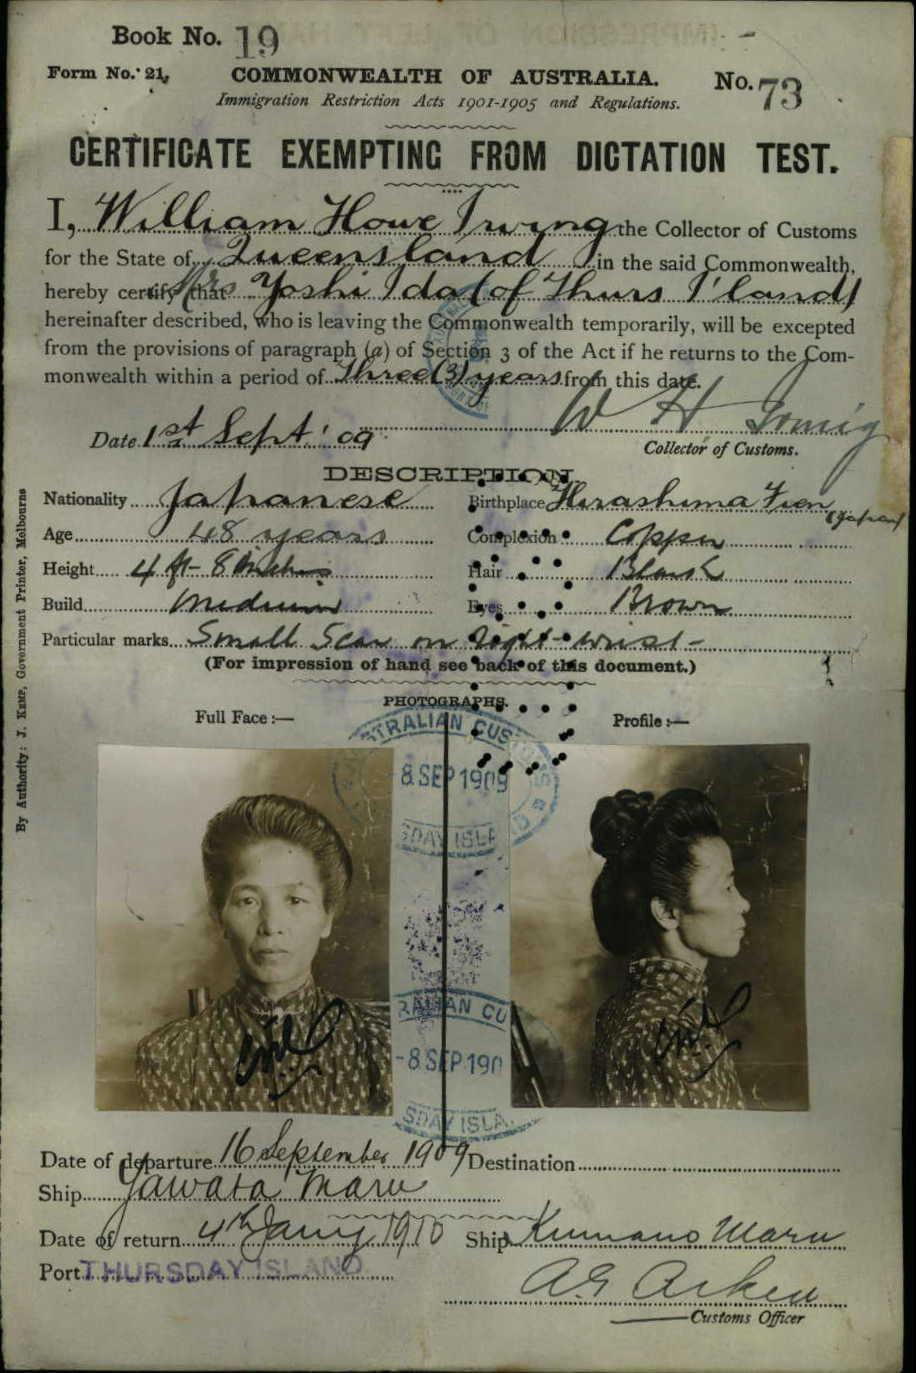 Book No. 19
Form No. 21. COMMONWEALTH OF AUSTRALIA. No. 73
Immigration Restriction Acts 1901-1905 and Regulations.
CERTIFICATE EXEMPTING FROM DICTATION TEST.
I, William Howe Irving the Collector of Customs
for the State of Queensland in the said Commonwealth,
hereby certify that Mrs Yoshi Ida (of Thurs I'land)
hereinafter described, who is leaving the Commonwealth temporarily, will be excepted
from the provisions of paragraph (a) of Section 3 of the Act if he returns to the Com-
monwealth within a period of Three (3) years from this date.
W H Irving
Date 1st Sept '09
Collector of Customs.
DESCRIPTION
Nationality Japanese Birthplace Hirashima Ken (Japan)
Age 48 years Complexion Copper
Height 4 ft 8 inches Hair Black
Build Medium Eyes Brown
Particular marks Small Scar on right wrist -
(For impression of hand see back of this document.)
PHOTOGRAPHS.
Full Face :— Profile :—
TRALIAN CUS
8 SEP 1909
SDAY ISL
RALIAN CU
-8 SEP 190
SDAY ISLA
Date of departure 16 September 1909 Destination
Ship Yawata Maru
Date of return 4th Jany 1910 Ship Kumano Maru
Port THURSDAY ISLAND
Customs Officer
By Authority: J. KEMP, Government Printer, Melbourne